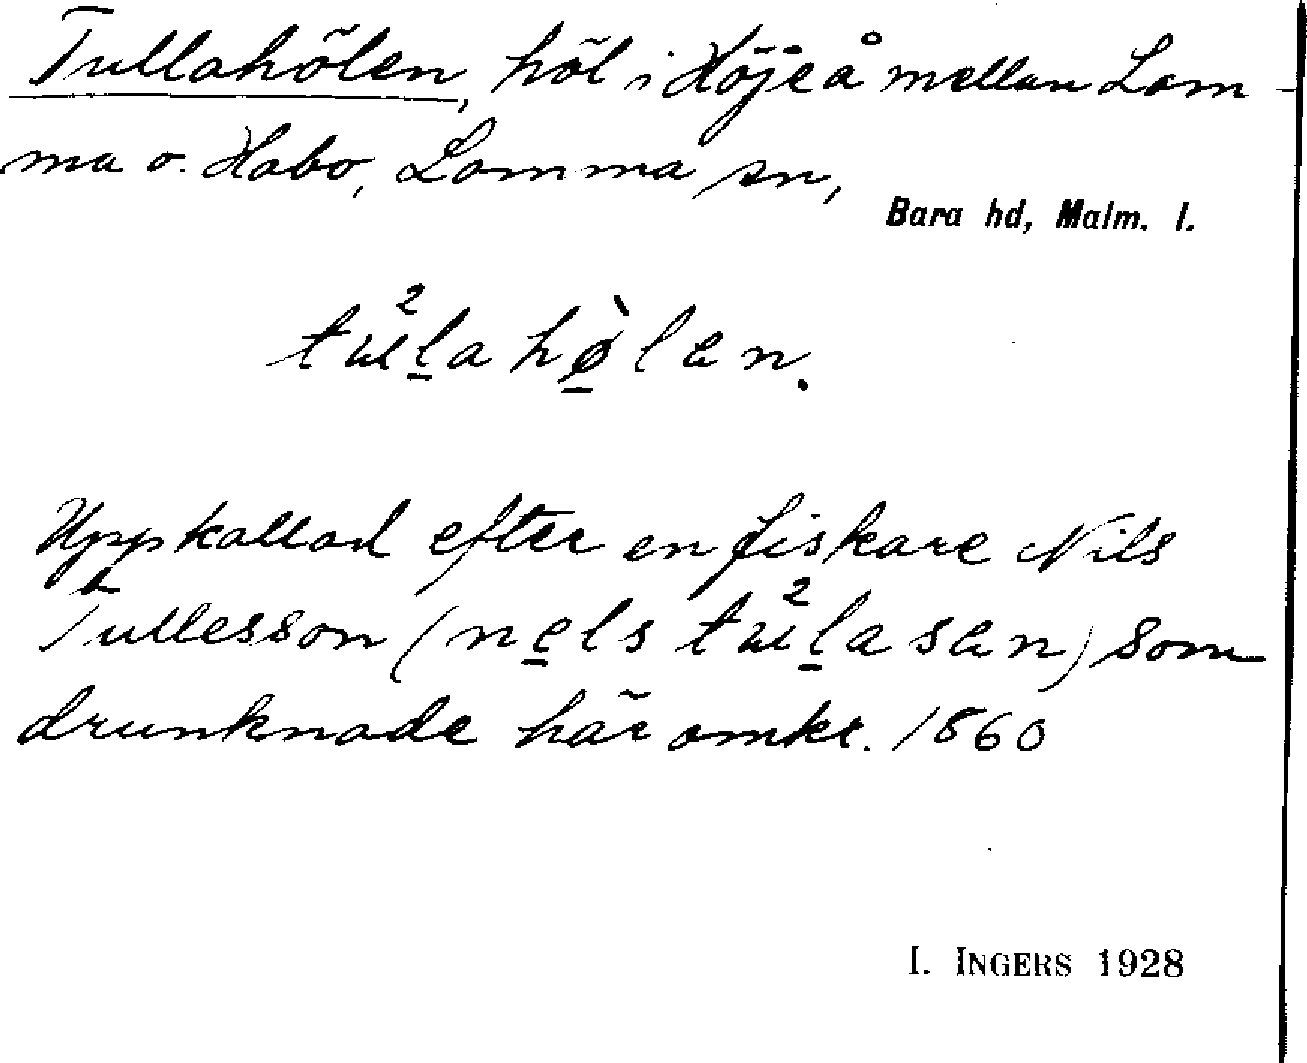 Tullahölen, höl i Höjeå mellan Lom-
ma o. Habo, Lomma sn,
Bara hd, Malm. l.
tɯ²l̠a hø̠̀len.
Uppkallad efter en fiskare Nils
Tullesson (ne̠ls tɯ²l̠asen) som
drunknade här omkr. 1860
I. INGERS 1928